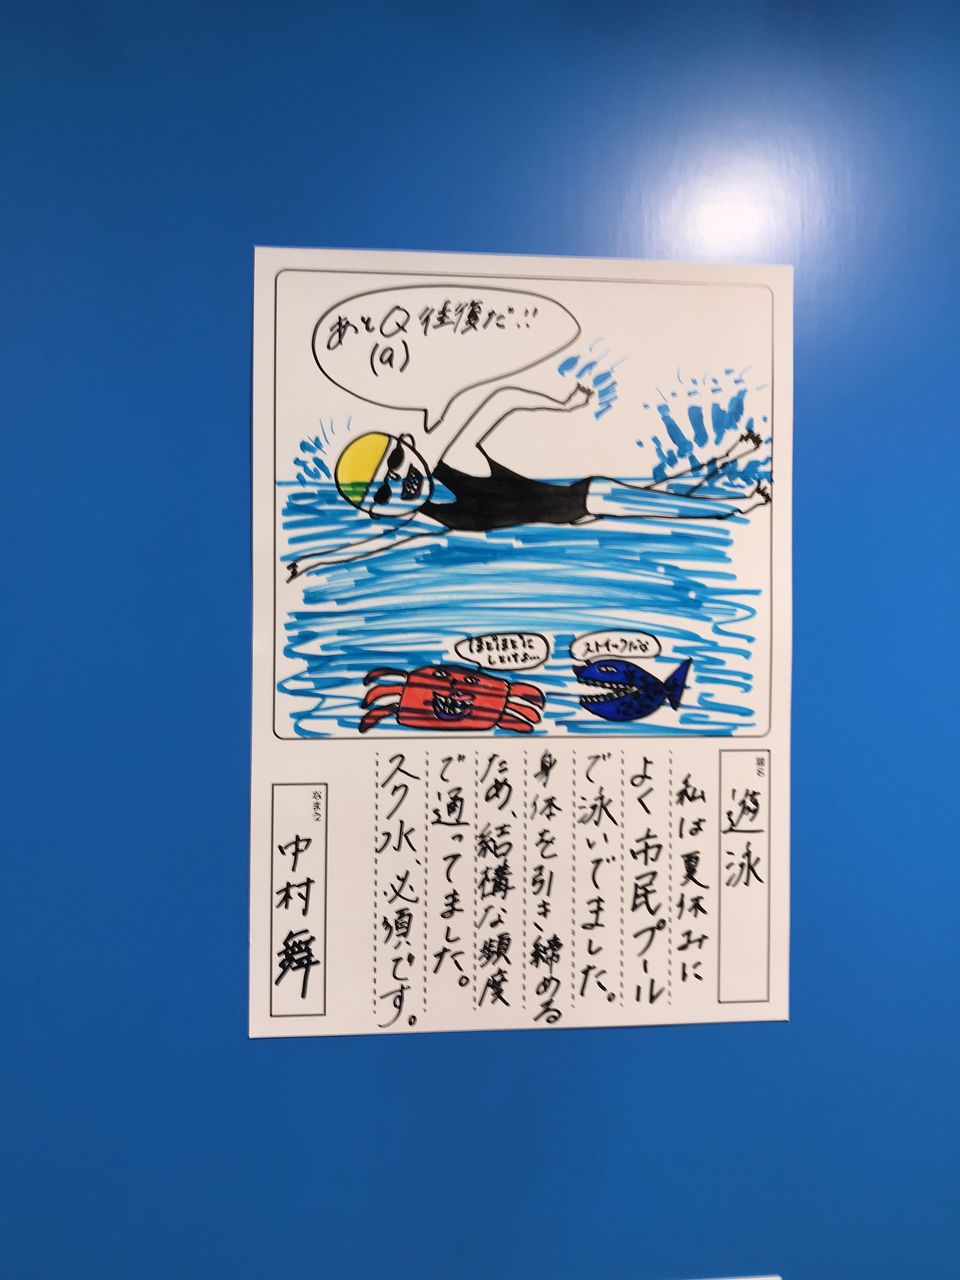 あとQ往復だ!!
(a)
ほどほどに
しとけよ…
ストイックだな
題名
遊泳
私は夏休みに
よく市民プール
で泳いでました。
身体を引き締める
ため、結構な頻度
で通ってました。
スク水、必須です。
なまえ
中村舞